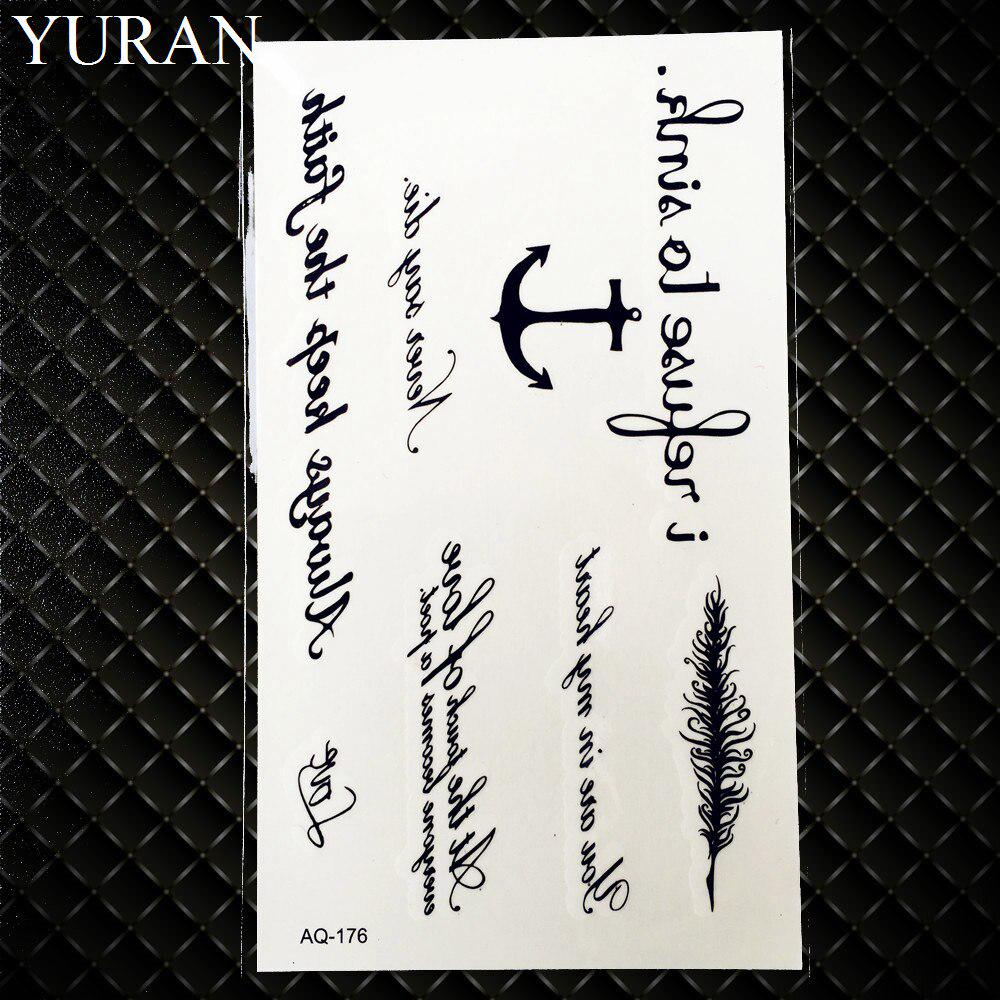 YURAN
i refuse to sink.
Never say die.
Always keep the Faith
You are in my heart
At the touch of love
everyone becomes a poet.
Love
AQ-176